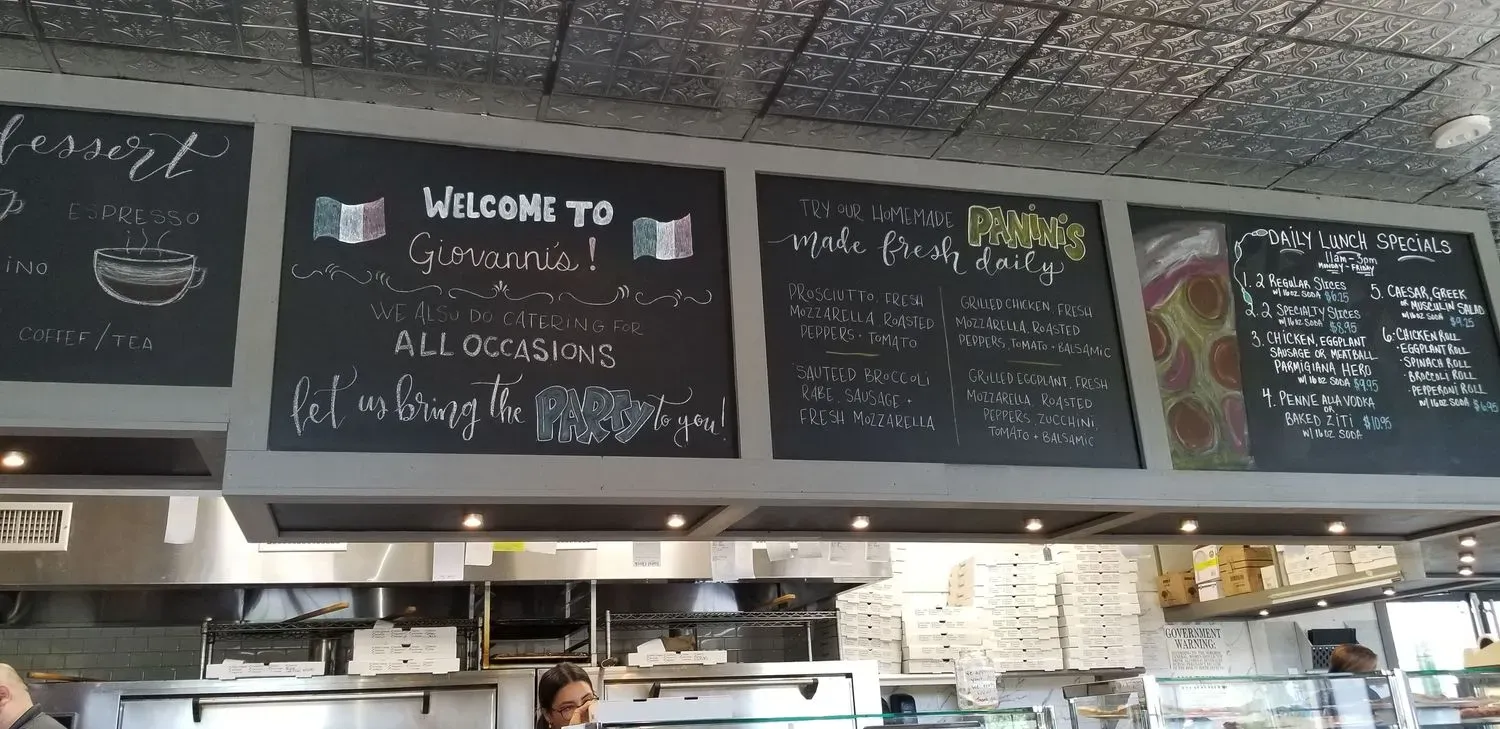 Dessert
ESPRESSO
INO
COFFEE/TEA
WELCOME TO
Giovanni's!
WE ALSO DO CATERING FOR
ALL OCCASIONS
let us bring the PARTY to you!
TRY OUR HOMEMADE PANINI'S
made fresh daily
PROSCIUTTO, FRESH
MOZZARELLA, ROASTED
PEPPERS + TOMATO
SAUTEED BROCCOLI
RABE, SAUSAGE +
FRESH MOZZARELLA
GRILLED CHICKEN, FRESH
MOZZARELLA, ROASTED
PEPPERS, TOMATO + BALSAMIC
GRILLED EGGPLANT, FRESH
MOZZARELLA, ROASTED
PEPPERS, ZUCCHINI,
TOMATO + BALSAMIC
DAILY LUNCH SPECIALS
11am-3pm
MONDAY-FRIDAY
1. 2 REGULAR SLICES
w/ 16oz SODA $6.25
2. 2 SPECIALTY SLICES
w/ 16oz SODA $8.95
3. CHICKEN, EGGPLANT
SAUSAGE OR MEATBALL
PARMIGIANA HERO
w/ 16oz SODA $9.95
4. PENNE ALLA VODKA
OR
BAKED ZITI $10.95
w/ 16oz SODA
5. CAESAR, GREEK
OR MUSCULIN SALAD
w/ 16oz SODA $9.25
6. CHICKEN ROLL
• EGGPLANT ROLL
• SPINACH ROLL
• BROCCOLI ROLL
• PEPPERONI ROLL
w/ 16oz SODA $6.95
GOVERNMENT
WARNING: